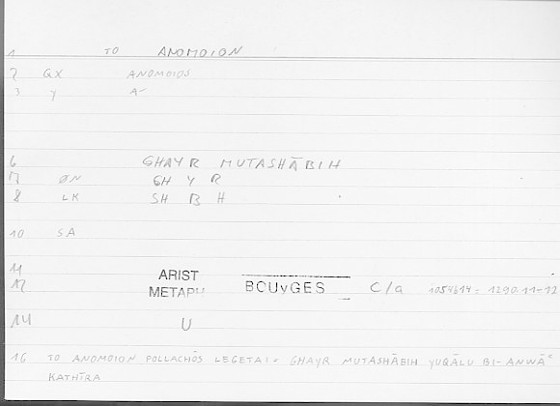 1 TO ANOMOION
2 QX ANOMOIOS
3 Y A-
6 GHAYR MUTASHĀBIH
7 ØN GH Y R
8 LK SH B H
10 SA
11 ARIST
12 METAPH BOUYGES C/a 1054b14 = 1290.11-12
14 U
16 TO ANOMOION POLLACHŌS LEGETAI = GHAYR MUTASHĀBIH YUQĀLU BI-ANWĀʿ
KATHĪRA